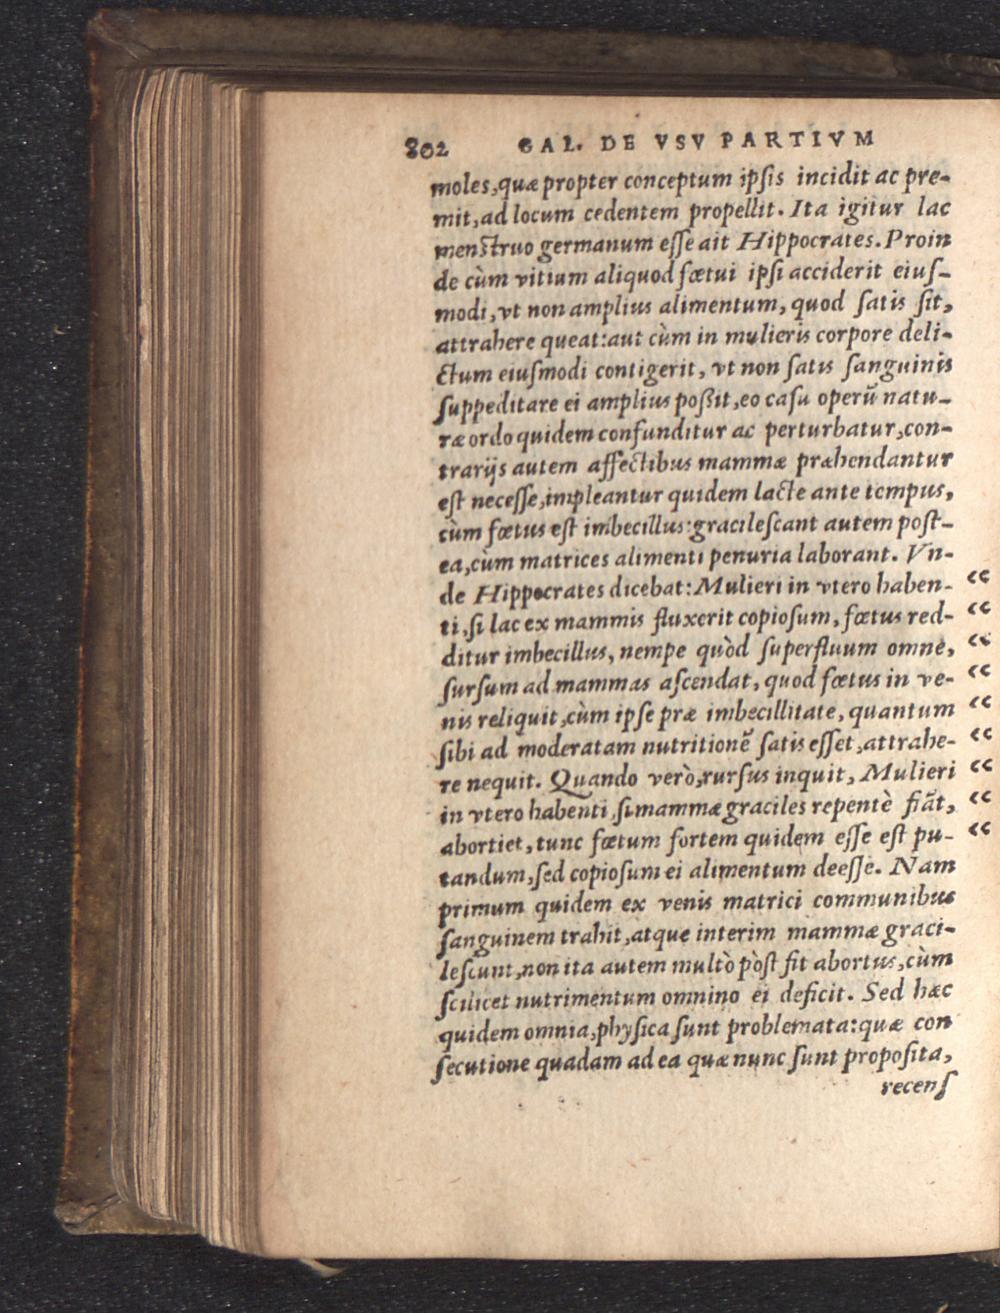 802 GAL. DE VSV PARTIVM
moles,quæ propter conceptum ipſis incidit ac pre-
mit,ad locum cedentem propellit. Ita igitur lac
menſtruo germanum eſſe ait Hippocrates. Proin
de cùm vitium aliquod fœtui ipſi acciderit eiuſ-
modi, vt non amplius alimentum, quod ſatis ſit,
attrahere queat:aut cùm in mulieris corpore deli-
ctum eiuſmodi contigerit, vt non ſatis ſanguinis
ſuppeditare ei amplius poßit,eo caſu operũ natu-
ræ ordo quidem confunditur ac perturbatur,con-
trarijs autem affectibus mammæ præhendantur
eſt neceſſe,impleantur quidem lacte ante tempus,
cùm fœtus eſt imbecillus:gracileſcant autem poſt-
ea,cùm matrices alimenti penuria laborant. Vn-
de Hippocrates dicebat:Mulieri in vtero haben- “
ti,ſi lac ex mammis fluxerit copioſum, fœtus red- “
ditur imbecillus, nempe quòd ſuperfluum omne, “
ſurſum ad mammas aſcendat, quod fœtus in ve- “
nis reliquit,cùm ipſe præ imbecillitate, quantum “
ſibi ad moderatam nutritionẽ ſatis eſſet,attrahe- “
re nequit. Quando verò,rurſus inquit, Mulieri “
in vtero habenti,ſi mammæ graciles repentè fiãt, “
abortiet, tunc fœtum fortem quidem eſſe eſt pu- “
tandum,ſed copioſum ei alimentum deeſſe. Nam
primum quidem ex venis matrici communibus
ſanguinem trahit,atque interim mammæ graci-
leſcunt,non ita autem multò pòſt fit abortus,cùm
ſcilicet nutrimentum omnino ei deficit. Sed hæc
quidem omnia,phyſica ſunt problemata:quæ con
ſecutione quadam ad ea quæ nunc ſunt propoſita,
recenſ